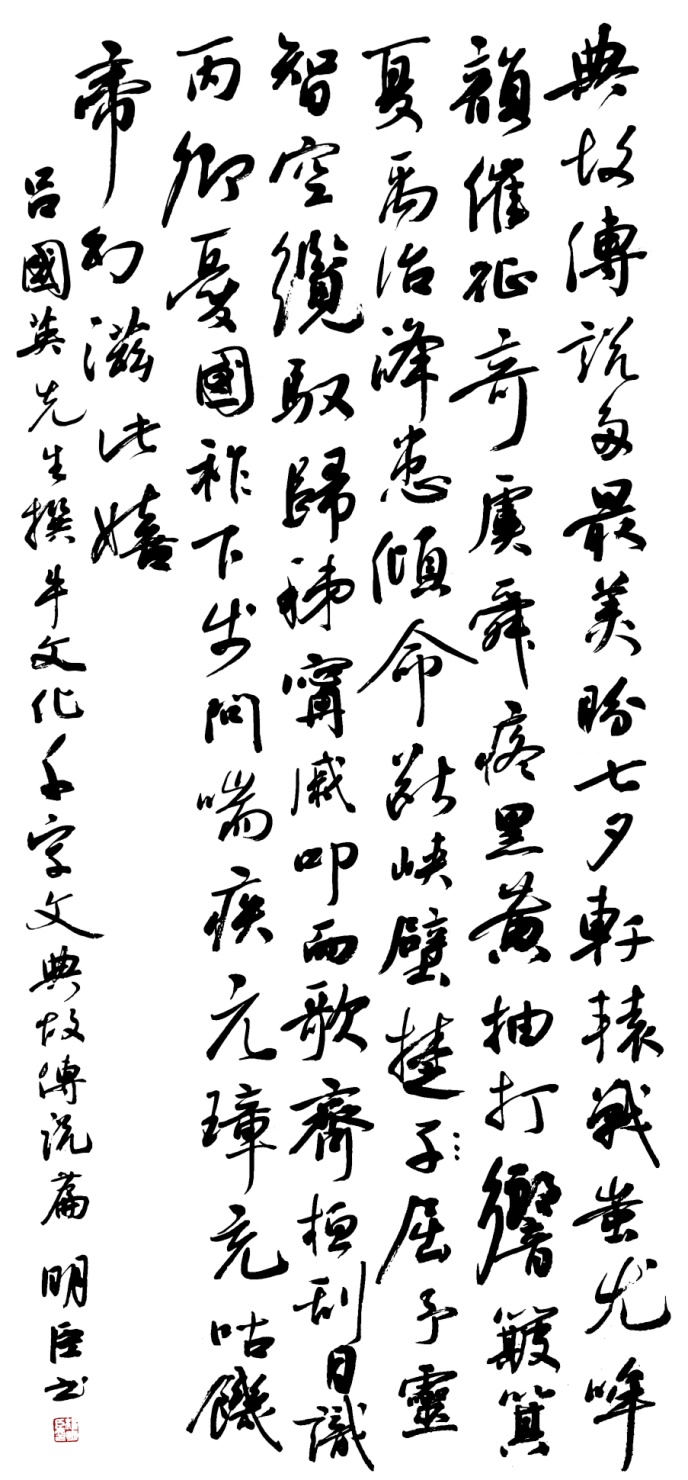 典故傳說多最美盼七夕軒轅戰蚩尤哞
韻催征奇虞舜疼黑黃抽打響簸箕
夏禹治峰患傾命獻峽壁㨗子屈予靈
智空纜馭歸稊甯戚叩而歌齊桓刮目識
丙卿憂國祚下步問喘疾元璋充咕饑
帝幻滋比嬉
呂國英先生撰牛文化千字文典故傳說篇 明臣书